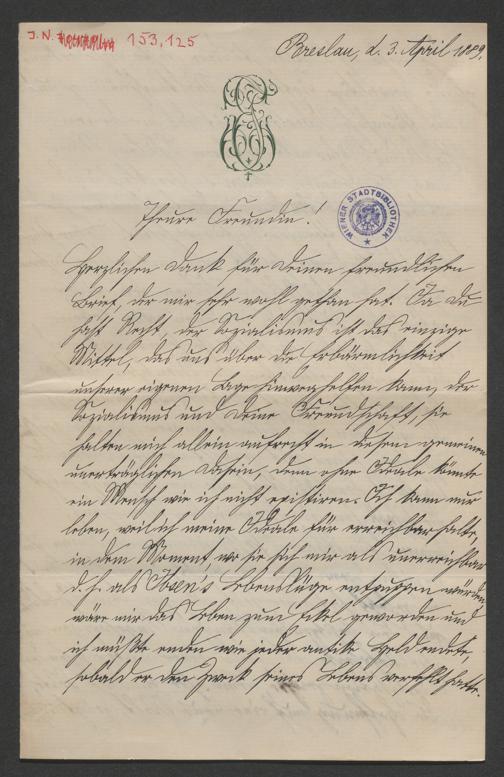 J. N. 153,125
Breslau, d. 3. April 1889.
WIENER STADTBIBLIOTHEK
Theure Freundin!
Herzlichen Dank für Deinen freundlichen
Brief, der mir sehr wohl gethan hat. Ja Du
hast Recht, der Sozialismus ist das einzige
Mittel, das uns über die Erbärmlichkeit
unserer eigenen Lage hinweghelfen kann, der
Sozialismus und Deine Freundschaft, sie
halten mich allein aufrecht in diesem gemeinen
unerträglichen Dasein, denn ohne Ideale könnte
ein Mensch wie ich nicht existiren. Ich kann nur
leben, weil ich meine Ideale für erreichbar halte,
in dem Moment, wo sie sich mir als unerreichbar
d. h. als Ibsen's Lebenslüge entpuppen würden
wäre mir das Leben zum Ekel geworden und
ich müßte enden wie jeder antike Held endete,
sobald er den Zweck seines Lebens verfehlt hatte.